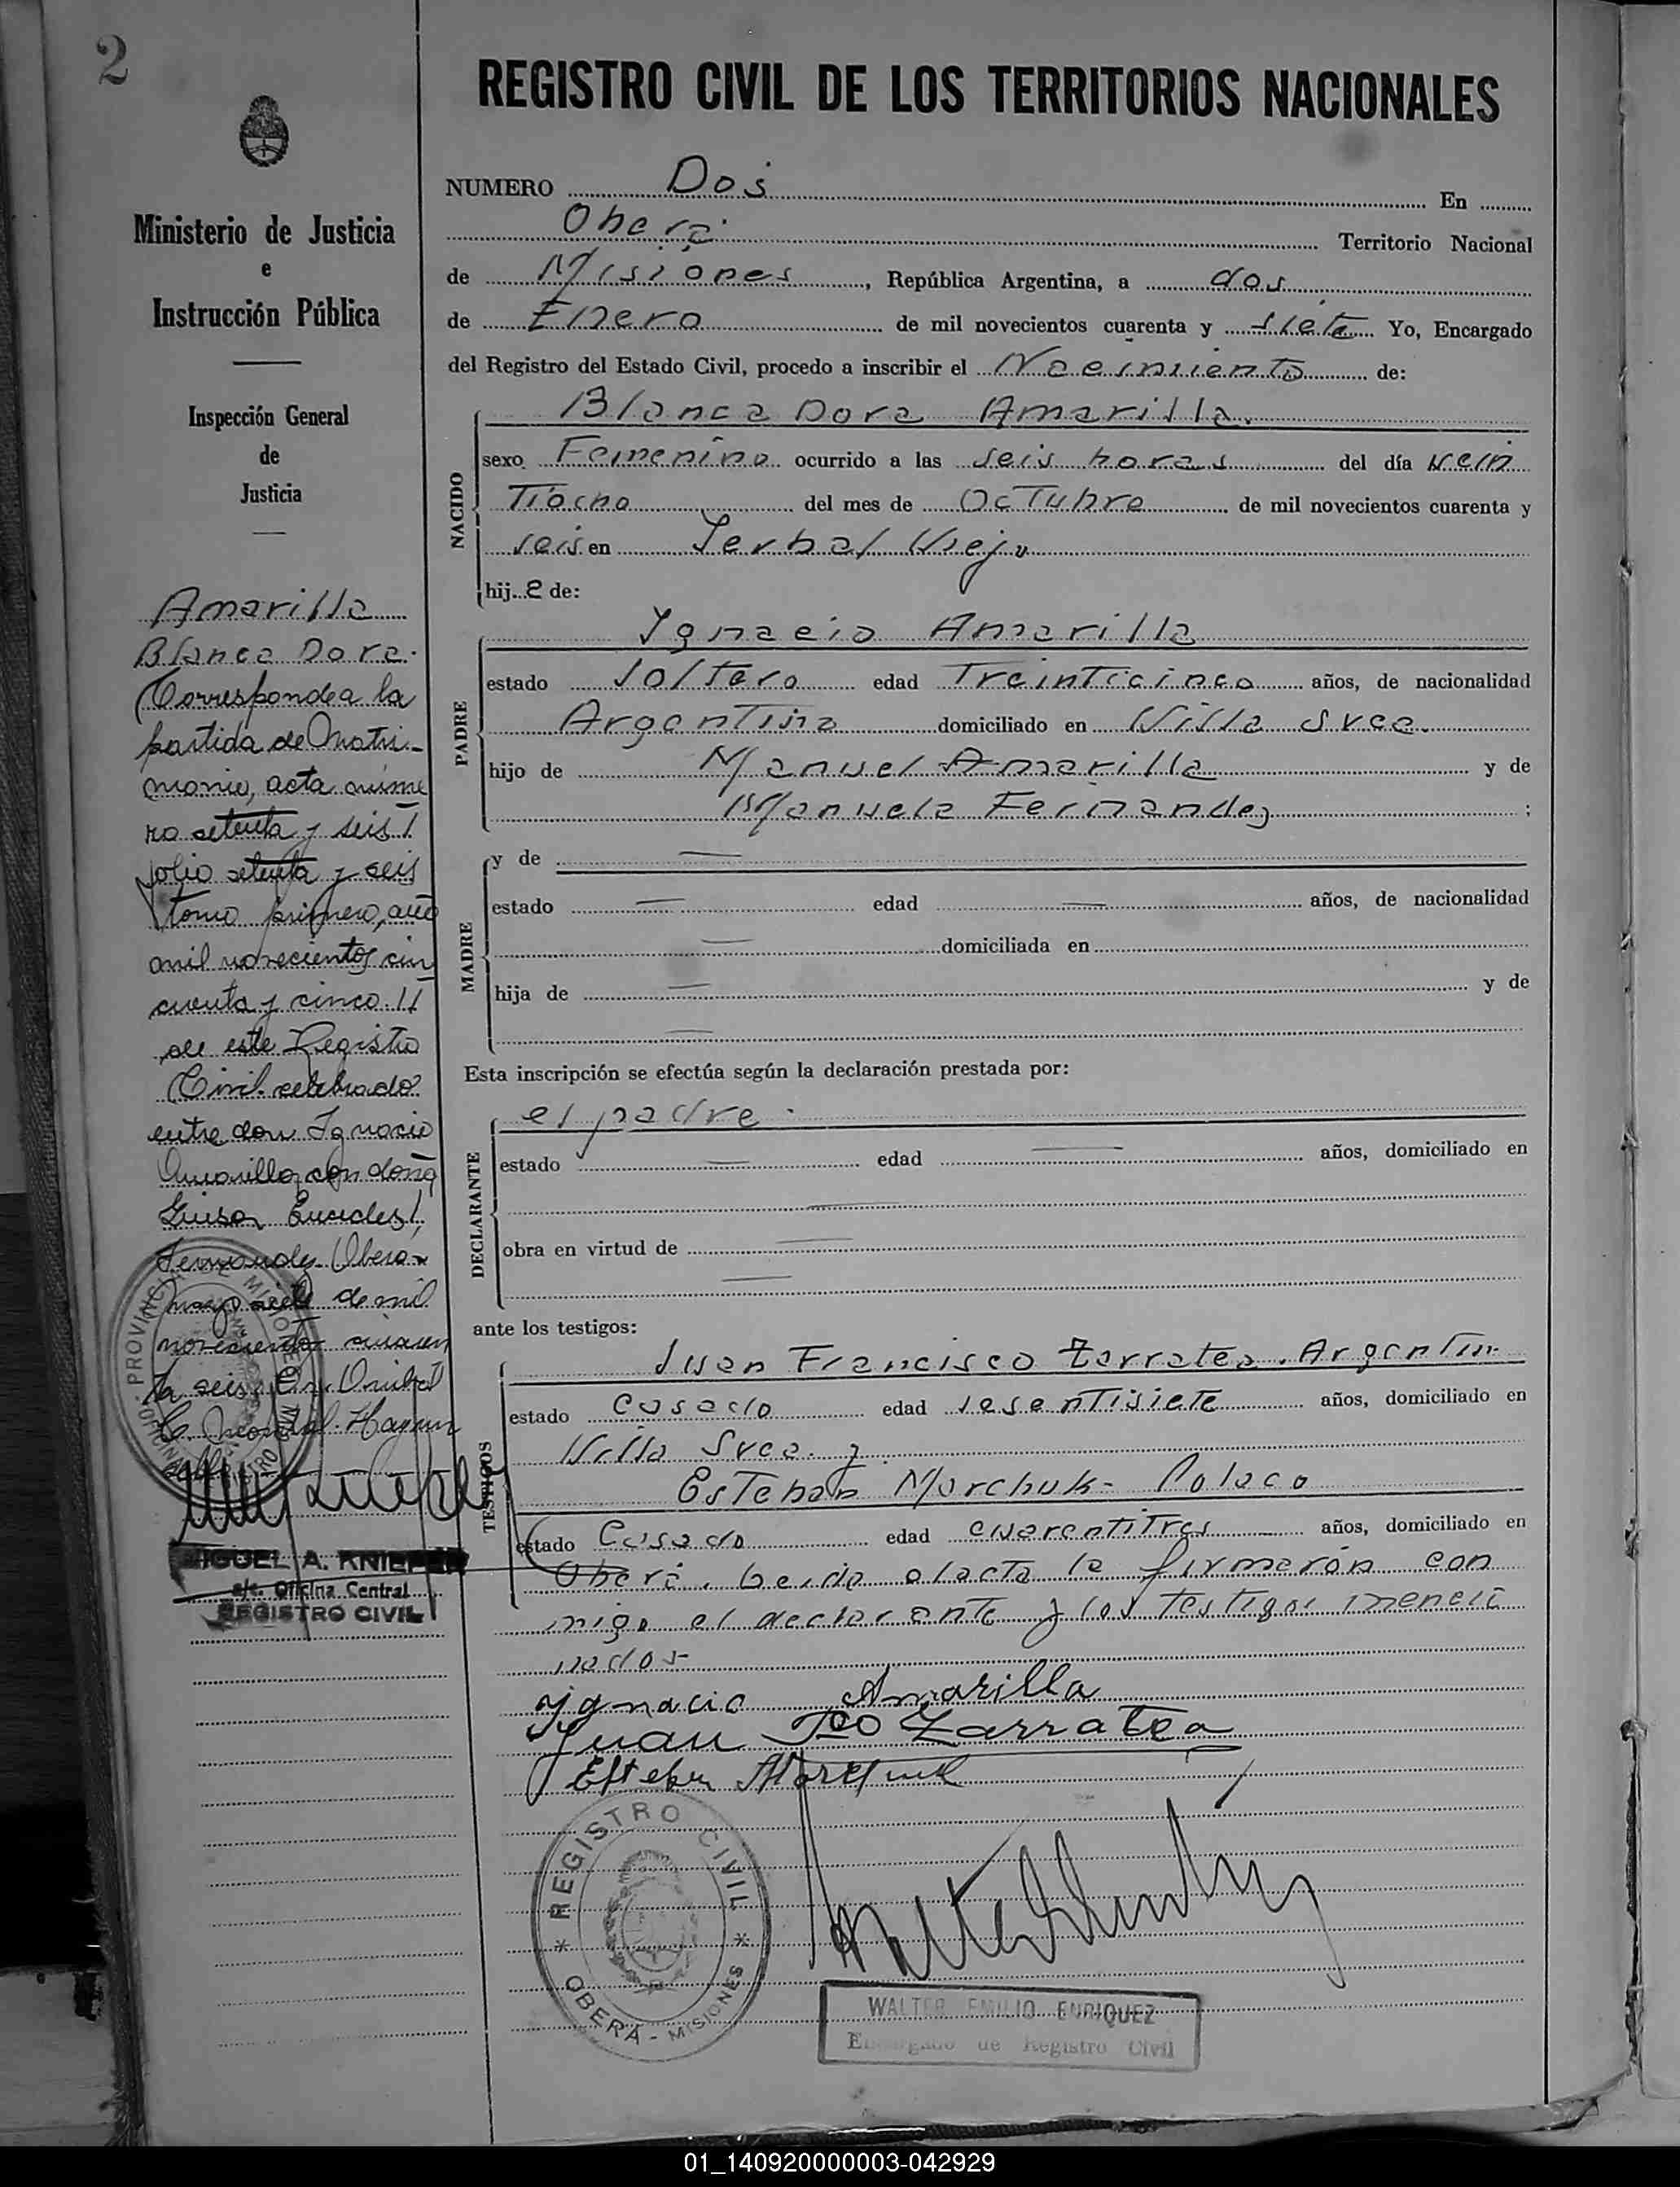 2
REGISTRO CIVIL DE LOS TERRITORIOS NACIONALES
Ministerio de Justicia
e
Instrucción Pública
Inspección General
de
Justicia
Amarilla
Blanca Dora.
Corresponde a la
partida de Matri-
monio, acta núme
ro setenta y seis
folio setenta y seis
tomo primero, año
mil novecientos cin
cuenta y cinco
de este Registro
Civil celebrado
entre don Ignacio
Amarilla con doña
Luisa
Fernandez. Oberá
mayo siete de mil
novecientos cincuen
ta seis.
PROVINCIA DE MISIONES
MIGUEL A. KNIEPER
a/c. Oficina Central
REGISTRO CIVIL
NUMERO Dos En
Oberá Territorio Nacional
de Misiones, República Argentina, a dos
de Enero de mil novecientos cuarenta y siete Yo, Encargado
del Registro del Estado Civil, procedo a inscribir el Nacimiento de:
NACIDO
Blanca Dora Amarilla.
sexo Femenino ocurrido a las seis horas del día vein
tiocho del mes de Octubre de mil novecientos cuarenta y
seis en Yerbal Viejo
hij a de:
PADRE
Ygnacio Amarilla
estado Soltero edad Treinticinco años, de nacionalidad
Argentina domiciliado en Villa Svea.
hijo de Manuel Amarilla y de
Manuela Fernandez ;
MADRE
y de —
estado — edad — años, de nacionalidad
— domiciliada en
hija de — y de
—
Esta inscripción se efectúa según la declaración prestada por:
DECLARANTE
el padre.
estado — edad — años, domiciliado en
—
obra en virtud de —
—
ante los testigos:
TESTIGOS
Juan Francisco Zarratea. Argentin
estado Casado edad sesentisiete años, domiciliado en
Villa Svea. y
Esteban Marchuk- Polaco
estado Casado edad cuarentitres años, domiciliado en
Oberá. Leida el acta la firmarón con
migo el declarante y los testigos mencio
nados-
Ygnacio Amarilla
Juan Fco Zarratea
REGISTRO CIVIL
OBERÁ - MISIONES
WALTER EMILIO ENRIQUEZ
Encargado de Registro Civil
01_140920000003-042929